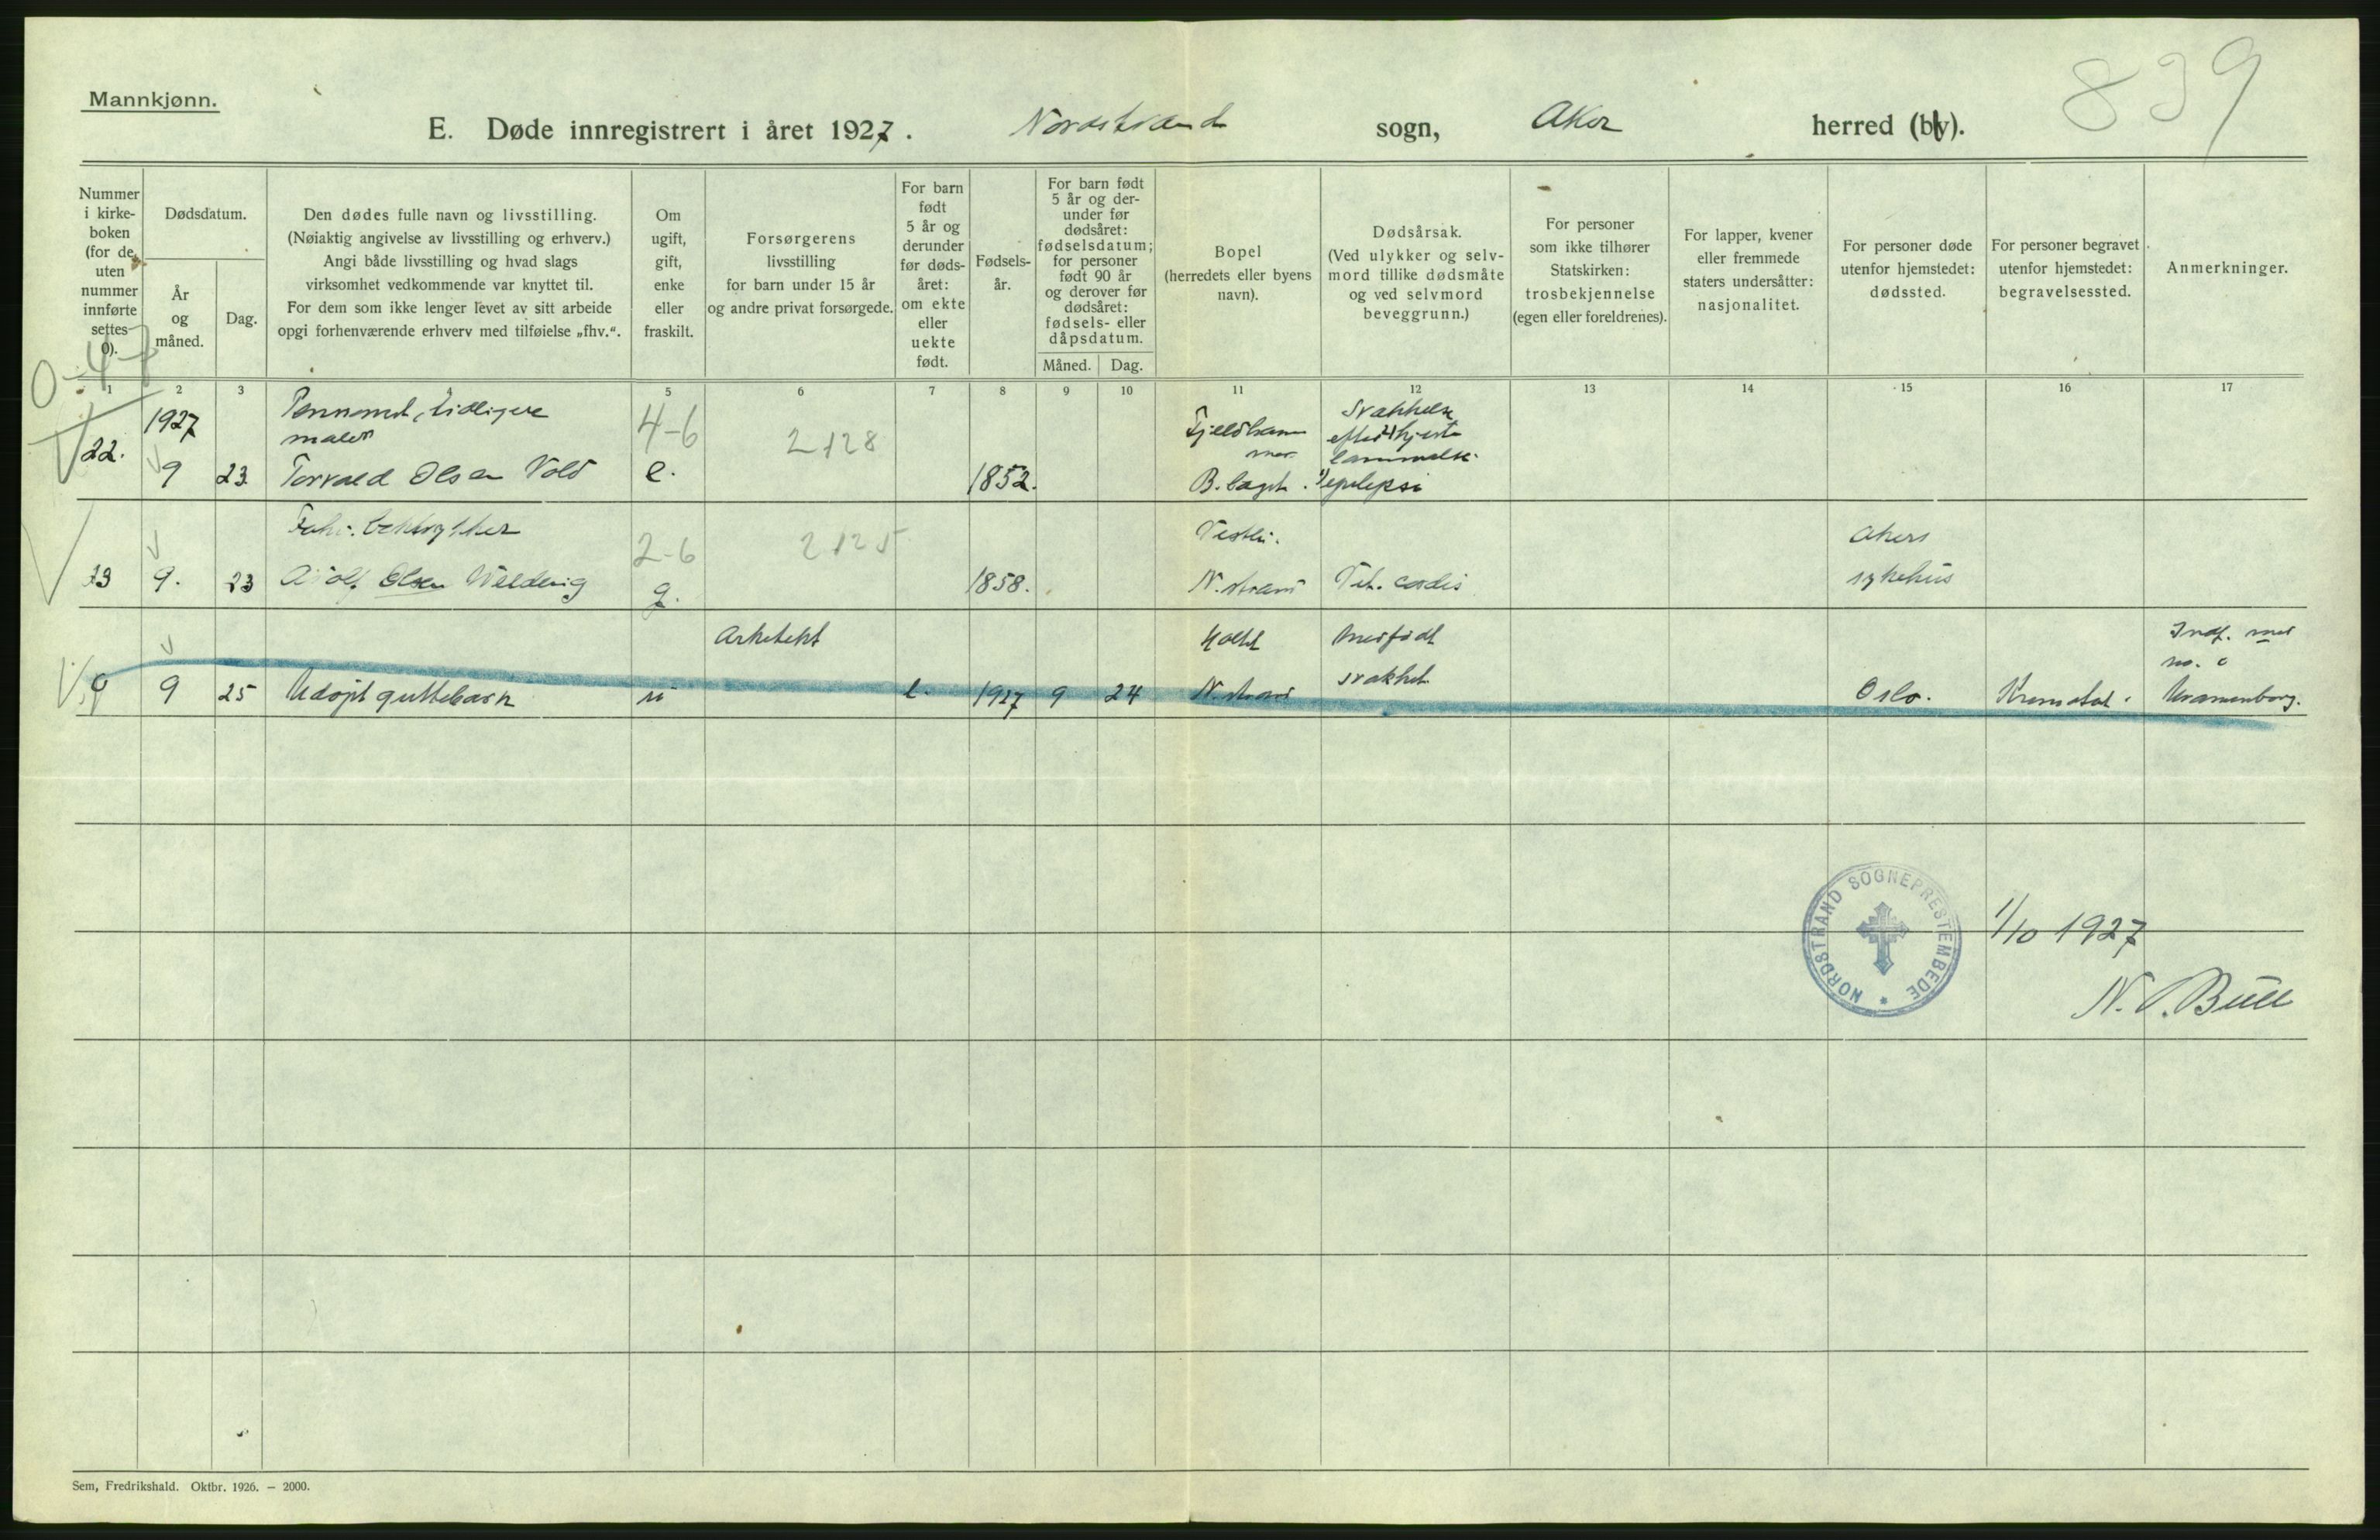 839
Mannkjønn.
E. Døde innregistrert i året 1927. Nordstrand sogn, Aker herred (by).
Nummer i kirke-boken (for de uten nummer innførte settes 0).
Dødsdatum.
År og måned.
Dag.
Den dødes fulle navn og livsstilling.
(Nøiaktig angivelse av livsstilling og erhverv.)
Angi både livsstilling og hvad slags
virksomhet vedkommende var knyttet til.
For dem som ikke lenger levet av sitt arbeide
opgi forhenværende erhverv med tilføielse „fhv.“.
Om ugift, gift, enke eller fraskilt.
Forsørgerens livsstilling
for barn under 15 år
og andre privat forsørgede.
For barn født 5 år og derunder før døds-året: om ekte eller uekte født.
Fødsels-år.
For barn født 5 år og der-under før dødsåret: fødselsdatum; for personer født 90 år og derover før dødsåret: fødsels- eller dåpsdatum.
Måned. Dag.
Bopel
(herredets eller byens navn).
Dødsårsak.
(Ved ulykker og selv-mord tillike dødsmåte og ved selvmord beveggrunn.)
For personer som ikke tilhører Statskirken: trosbekjennelse (egen eller foreldrenes).
For lapper, kvener eller fremmede staters undersåtter: nasjonalitet.
For personer døde utenfor hjemstedet: dødssted.
For personer begravet utenfor hjemstedet: begravelsessted.
Anmerkninger.
0-4-7
1 2 3 4 5 6 7 8 9 10 11 12 13 14 15 16 17
1927 tidligere 4-6 2128 Svækkelse
maler efter hjerte
22. 9 23. Torvald Olsen Vold e. 1852. B. laget. epilepsi
Fabr. 2-6 2125 Vestli. Akers
23 9. 23 Adolf Olsen g. 1858. N. strand Vit. cordis sykehus
Arkitekt Holtet Medfødt Indf. med
svakhet no. 0
9 25 Udøpt guttebarn u e. 1927 9 24 N. strand Oslo. Uranienborg.
NORDSTRAND SOGNEPRESTEMBEDE
1/10 1927
N. Bull
Sem, Fredrikshald. Oktbr. 1926. — 2000.